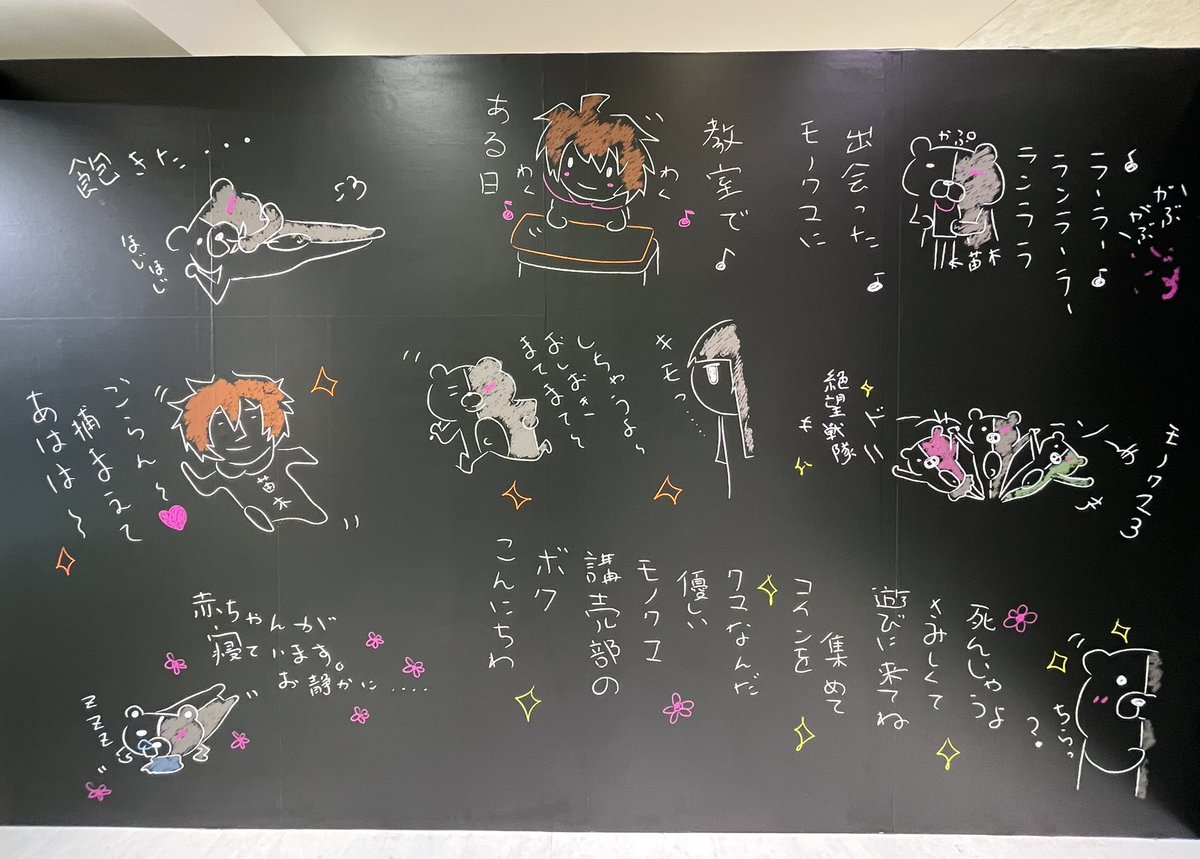 飽きた・・・
ほじ
ほじ
ある日
わく
わく
教室で♪
モノクマに
出会った♪
かぷ
苗木
ランラララ
ランラーラー
ラーラー♪
がぶ
がぶ
あはは〜
捕まえて
ごらん〜
苗木
まてまて〜
おしおき〜
しちゃうよ〜
キモっ……
絶望戦隊
モノクマ3
ドーン
赤ちゃんが
寝ています。
お静かに....
ZZZ
こんにちわ
ボク
講売部の
モノクマ
優しい
クマなんだ
コインを
集めて
遊びに来てね
さみしくて
死んじゃうよ
?
ちらっ